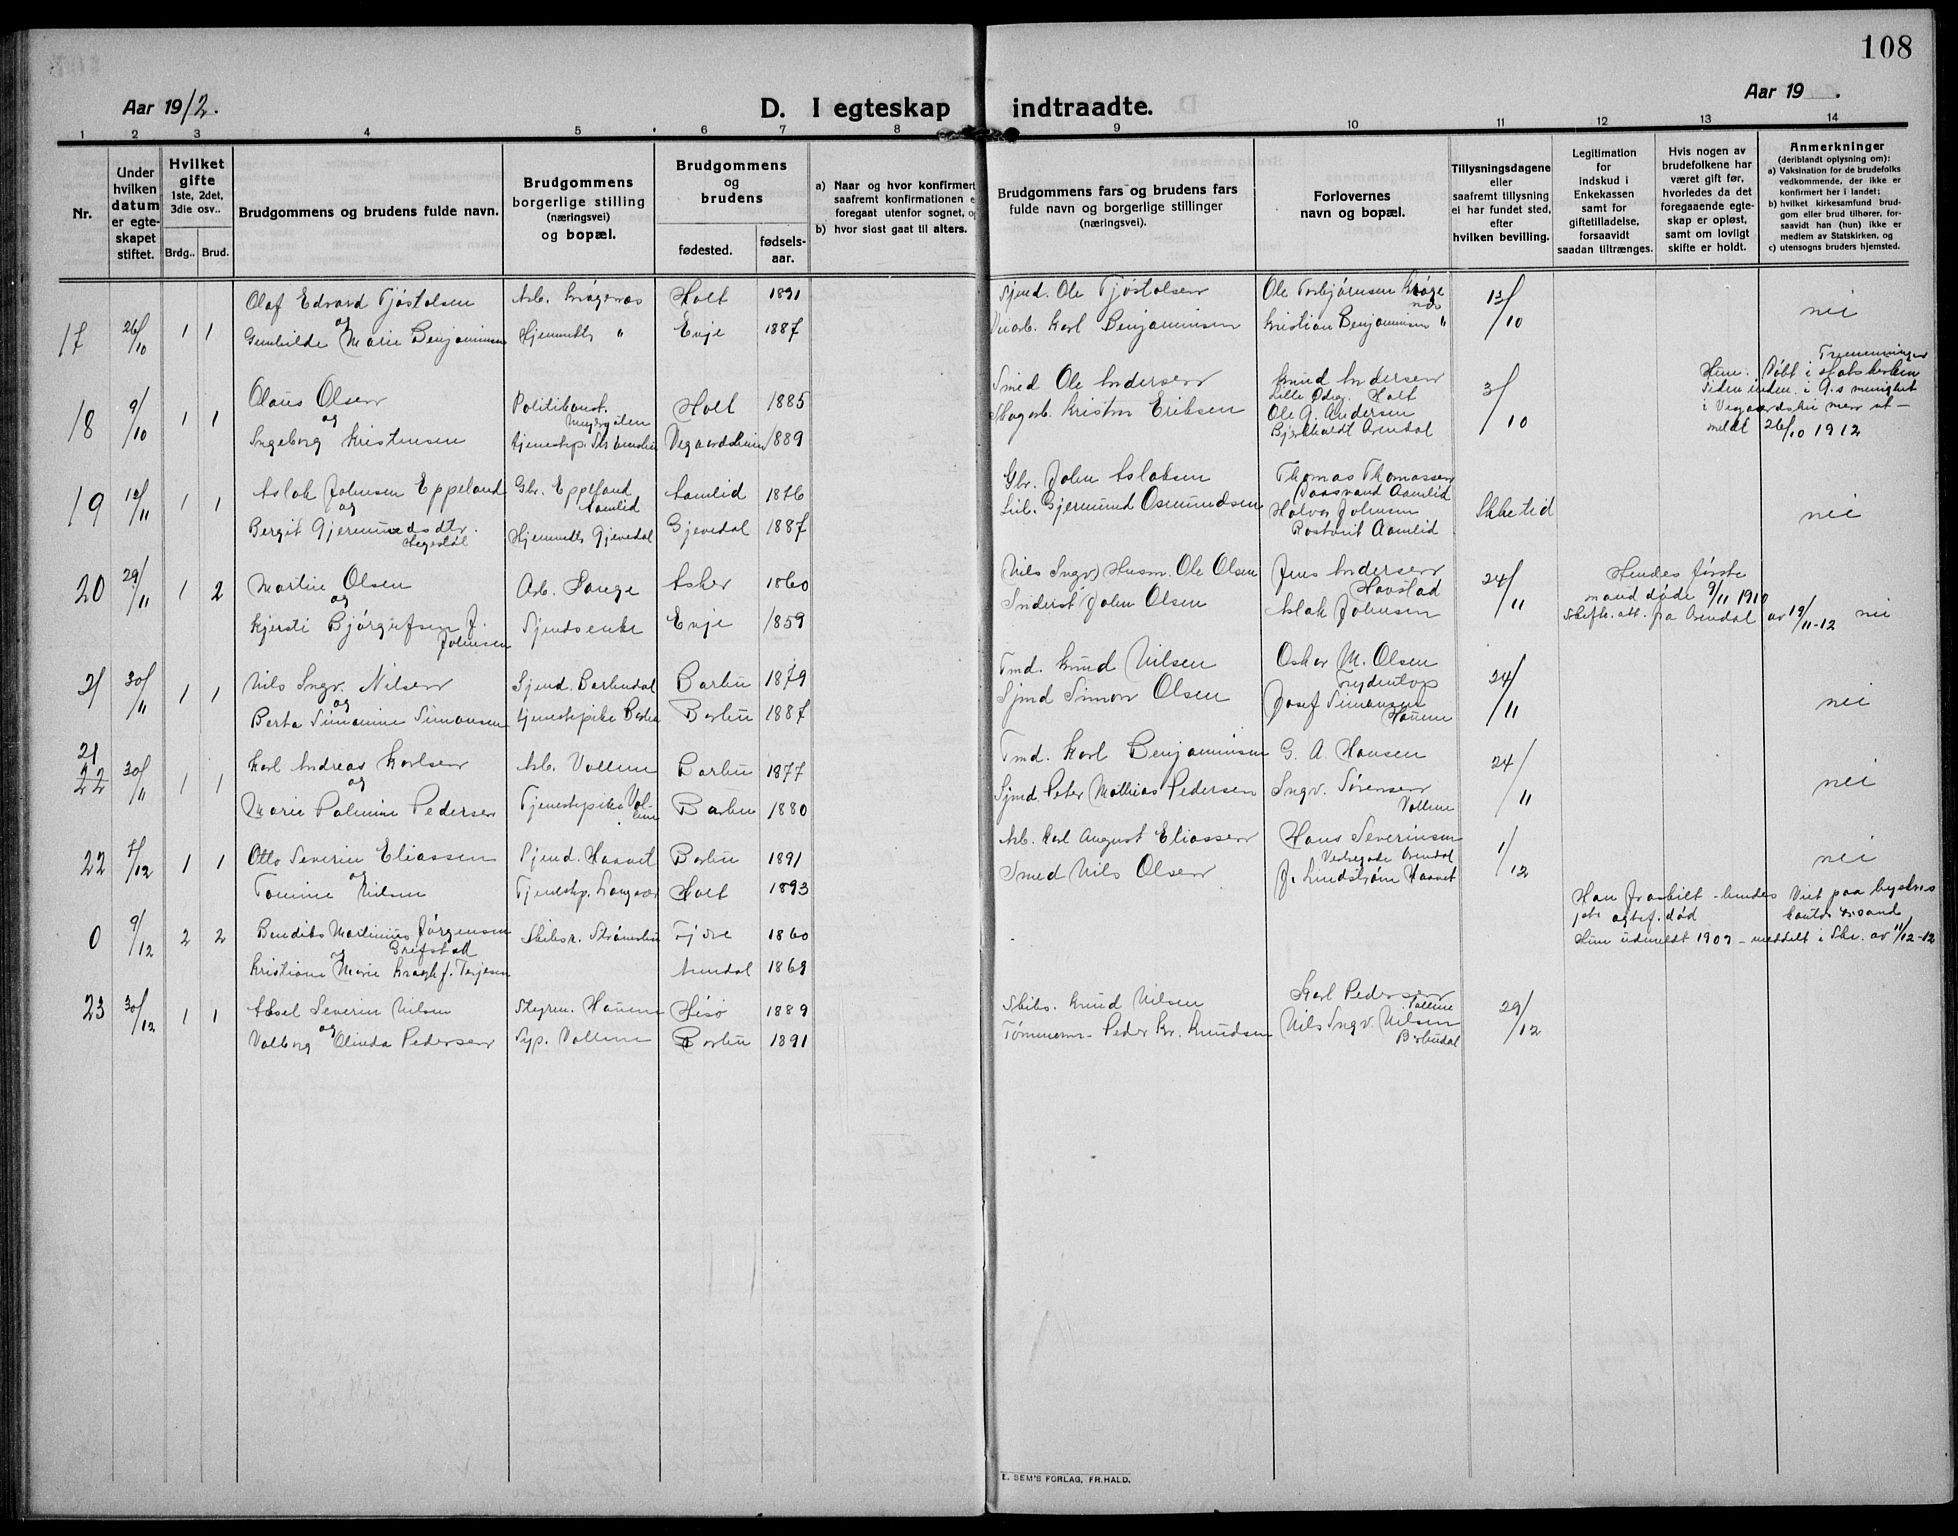 108
Aar 1912.
D. I egteskap indtraadte.
Aar 19 .
1 2 3 4 5 6 7 8 9 10 11 12 13 14
Nr.
Under hvilken datum er egteskapet stiftet.
Hvilket gifte 1ste, 2det, 3die osv..
Brdg.. Brud.
Brudgommens og brudens fulde navn.
Brudgommens borgerlige stilling (næringsvei) og bopæl.
Brudgommens og brudens
fødested. fødselsaar.
a) Naar og hvor konfirmert saafremt konfirmationen e foregaat utenfor sognet, o
b) hvor sidst gaat til alters.
Brudgommens fars og brudens fars fulde navn og borgerlige stillinger (næringsvei).
Forlovernes navn og bopæl.
Tillysningsdagene eller saafremt tillysning ei har fundet sted, efter hvilken bevilling.
Legitimation for indskud i Enkekassen samt for giftetilladelse, forsaavidt saadan tiltrænges.
Hvis nogen av brudefolkene har været gift før, hvorledes da det foregaaende egteskap er opløst, samt om lovligt skifte er holdt.
Anmerkninger (deriblandt oplysning om):
a) Vaksination for de brudefolks vedkommende, der ikke er konfirmert her i landet;
b) hvilket kirkesamfund brudgom eller brud tilhører, forsaavidt han (hun) ikke er medlem av Statskirken, og
c) utensogns bruders hjemsted.
17 26/10 1 1 Olaf Edvard Tjøstolsen Arb. Krøgenes Holt 1891 Sjmd. Ole Tjøstolsen Ole Torbjørnsen Krøgenes 13/10 nei
og
Gunhilde Marie Benjaminsen Hjemmeth. " Evje 1887 Karl Benjaminsen Kristian Benjaminsen "
18 9/10 1 1 Olaus Olsen Politikonst. Holt 1885 Smed Ole Andersen Knud Andersen Holt 3/10
og
Ingeborg Kristensen Vegaardsheien 1889 Skogarb. Kristen Eriksen Ole G. Andersen Arendal
Hun. Døbt i statskirken
meldt 26/10 1912
19 12/11 1 1 Aslak Johnsen Eppeland Gbr. Eppeland Aamlid Aamlid 1876 Gbr. John Aslaksen Thomas Thomassen Aamlid Ikke tid nei
og
Bergit Gjermundsdtr. Hjemmeth. Gjevedal Gjevedal 1887 Gjermund Osmundsen Halvor Johnsen Aamlid
20 29/11 1 2 Martin Olsen Arb. Songe Asker 1860 Husm. Ole Olsen Jens Andersen Havstad 24/11
og
Kjersti Bjørgufsen f. Johnsen Sjmdsenke Evje 1859 Inderst John Olsen Aslak Johnsen
Hendes første mand døde 9/11 1910
Skifte. att. fra Arendal av 19/11-12 nei
21 30/11 1 1 Nils Ingv. Nilsen Sjmd. Barbudal Barbu 1879 Tmd. Knud Nilsen Oskar M. Olsen 24/11 nei
og
Berta Simonine Simonsen tjenestepike Barbu Barbu 1887 Sjmd Simon Olsen Josef Simonsen
21
22 30/11 1 1 Karl Andreas Karlsen Arb. Vollene Barbu 1877 Tmd. Karl Benjaminsen G. A. Hansen 24/11 nei
og
Marie Paline Pedersen Tjenestepike Vollene Barbu 1880 Sjmd. Peter Mathias Pedersen Ingv. Sørensen Vollene
22 7/12 1 1 Otto Severin Eliassen Sjmd. Haavet Barbu 1891 Arb. Karl August Eliassen Hans Severinsen Arendal 1/12 nei
og
Tomine Nilsen Tjenestep. Holt 1893 Smed Nils Olsen J. Lindstrøm Haavet
0 9/12 2 2 Bendiks Martinius Jørgensen Grefstad Skibsr. 1860
og
Kristiane Marie Kragh f. Terjesen Arendal 1869
Han fraskilt - hendes
Viet paa byskrivs
Hun utmeldt 1909 - meddelt i Skr. av 11/12-12
23 30/12 1 1 Aksel Severin Nilsen Styrm. Hisø 1889 Skibs. Knud Nilsen Karl Pedersen Vollene 29/12
og
Valborg Olinda Pedersen Syp. Vollene Barbu 1891 Tømmerm. Peder Kr. Knudsen Nils Ingv. Nilsen Barbudal
E. SEM'S FORLAG, FR.HALD.